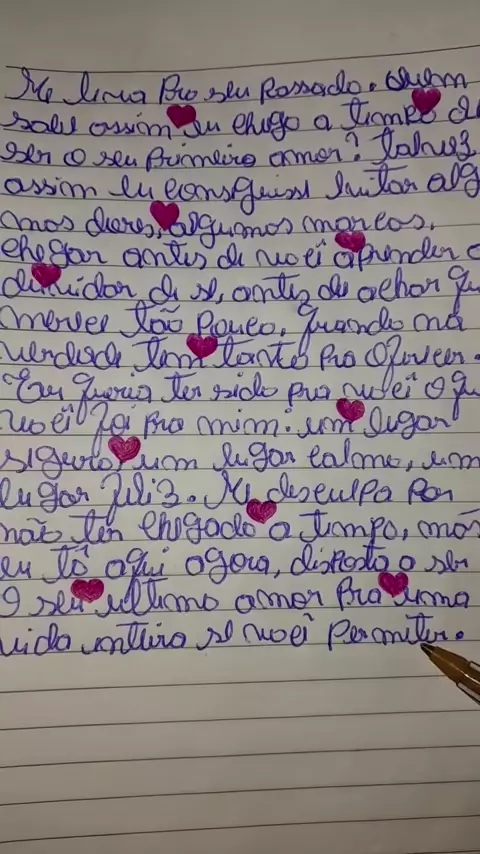 Me leva pro seu passado. Quem
sabe assim eu chego a tempo de
ser o seu primeiro amor? Talvez
assim eu conseguisse evitar alg
mas dores, algumas marcas,
chegar antes de você aprender a
duvidar de si, antes de achar qu
merece tão pouco, quando na
verdade tem tanto pra oferecer.
Eu queria ter sido pra você o qu
você foi pra mim: um lugar
seguro, um lugar calmo, um
lugar feliz. Me desculpa por
não ter chegado a tempo, mas
eu tô aqui agora, disposto a ser
o seu último amor pra uma
vida inteira se você permitir.